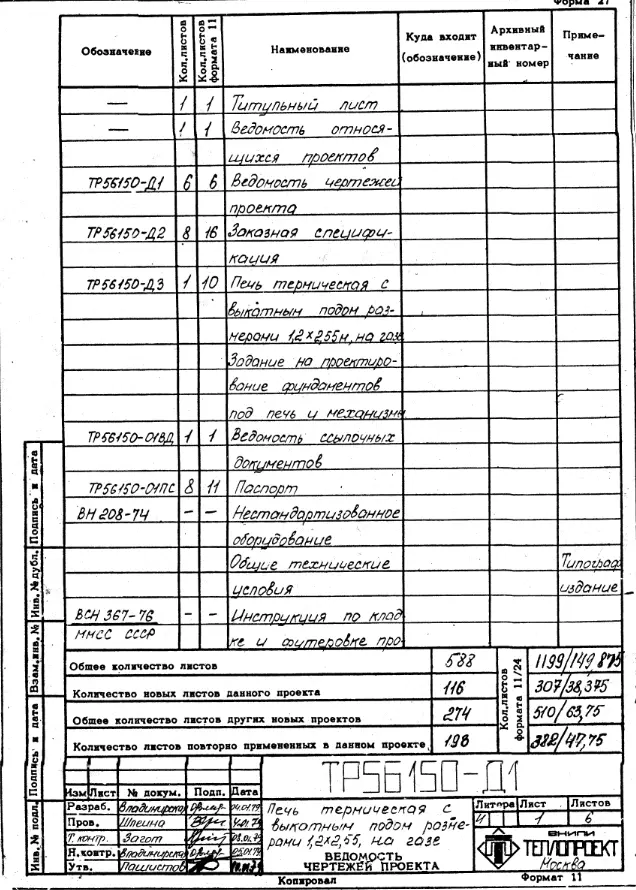 Форма 27
Обозначение Кол.листов Кол.листов формата 11 Наименование Куда входит (обозначение) Архивный инвентарный номер Примечание
— 1 1 Титульный лист
— 1 1 Ведомость относя-
щихся проектов
ТР56150-Д1 6 6 Ведомость чертежей
проекта
ТР56150-Д2 8 16 Заказная специфи-
кация
ТР56150-Д3 1 10 Печь термическая с
выкатным подом раз-
мерами 1,2×2,55м, на газе
Задание на проектиро-
вание фундаментов
под печь и механизмы
ТР56150-01ВД 1 1 Ведомость ссылочных
документов
ТР56150-01ПС 8 11 Паспорт
ВН 208-74 — — Нестандартизованное
оборудование
Общие технические Типограф
условия издание
ВСН 367-76 — — Инструкция по клад
ММСС СССР ке и футеровке про-
Общее количество листов 588 1199/149,875
Количество новых листов данного проекта 116 307/38,375
Общее количество листов других новых проектов 274 510/63,75
Количество листов повторно примененных в данном проекте 198 382/47,75
Кол.листов формата 11/24
Инв.№ подл. Подпись и дата Взам.инв.№ Инв.№ дубл. Подпись и дата
ТР56150-Д1
Изм Лист № докум. Подп. Дата
Разраб. Владимирская
Пров. Шпеина
Т. контр. Загот
Н.контр. Владимирская
Утв.
Печь термическая с
выкатным подом разме-
рами 1,2×2,55, на газе
ВЕДОМОСТЬ
ЧЕРТЕЖЕЙ ПРОЕКТА
Литера Лист Листов
И 1 6
ВНИПИ
ТЕПЛОПРОЕКТ
Москва
Копировал Формат 11